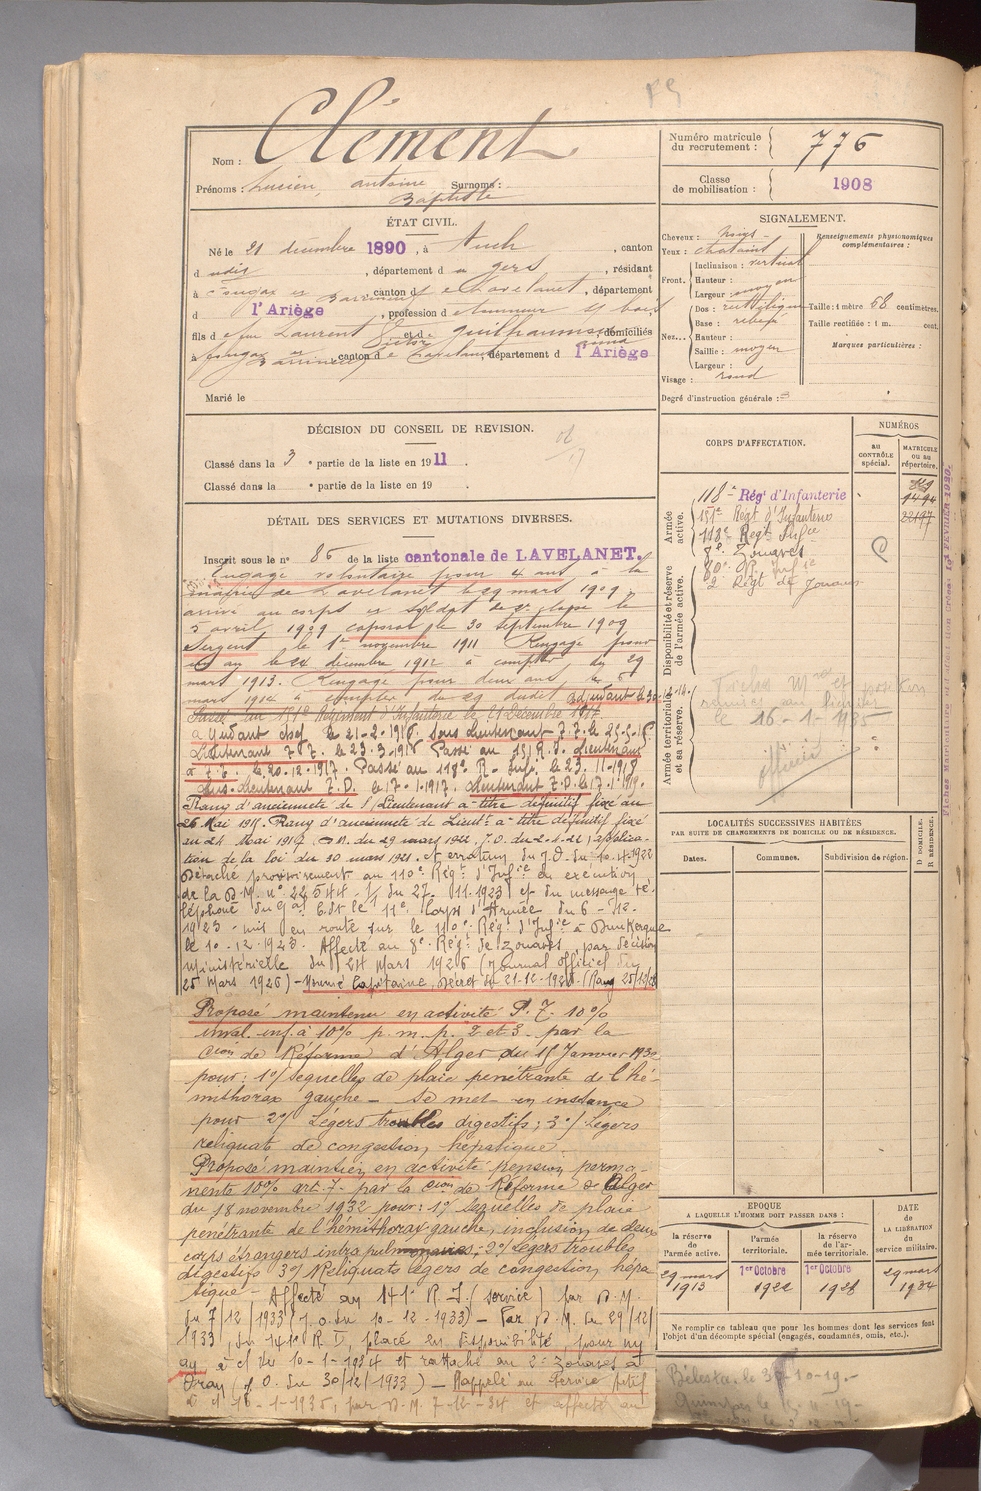 Nom : Clément
Prénoms : Lucien, antoine Surnoms :
Baptiste
ÉTAT CIVIL.
Né le 21 décembre 1890, à Auch, canton
d udit, département du gers, résidant
à fougax et Barrineuf, canton de Lavelanet, département
d l'Ariège, profession de tourneur s/ bois
fils de feu Laurent Victor et de guilhaumon domiciliés
à fougax et Barrineuf canton de Lavelanet département d l'Ariège
Marié le
DÉCISION DU CONSEIL DE REVISION.
Classé dans la 3e partie de la liste en 1911.
Classé dans la e partie de la liste en 19 .
DÉTAIL DES SERVICES ET MUTATIONS DIVERSES.
Inscrit sous le n° 86 de la liste cantonale de LAVELANET.
Engagé volontaire pour 4 ans, à la
mairie de Lavelanet le 29 mars 1909,
arrivé au corps et soldat de 2e classe le
5 avril 1909 caporal le 30 septembre 1909
Sergent le 1er novembre 1911 Rengagé pour
un an le 24 décembre 1912 à compter du 29
mars 1913. Rengagé pour deux ans, le
mars 1914 à compter du 29 dudit adjudant le
Passé au 151e Régiment d'Infanterie le 21 Décembre
adjudant chef le 21-2-1916 Sous Lieutenant T.T. le
Lieutenant T.T. le 23.3.1916 Passé au 151 R.I. Lieutenant
à T.T. le 20-12-1917. Passé au 118e R. Inf. le 23.11.1918
Sous-Lieutenant T.D. le 17-1-1917. Lieutenant T.D. le
Rang d'ancienneté de S/Lieutenant à titre définitif fixé au
26 Mai 1915. Rang d'ancienneté de Lieutt à titre définitif fixé
au 24 Mai 1917. D.M. du 29 mars 1922, J.O. du 2-4-22, applica-
tion de la loi du 30 mars 1921. et erratum du J.O. du 10-4-1922
Détaché provisoirement au 110e Régt d'Infie en exécution
de la D.M. n° 22544 1/ du 27.11.1923 et du message té-
léphoné du Gal Cdt le 11e Corps d'Armée du 6-12-
1923 mis en route sur le 110e Régt d'Infie à Dunkerque
le 10-12-1923. Affecté au 8e Régt de Zouaves, par décision
Ministérielle du 24 Mars 1926 (Journal Officiel du
25 Mars 1926) - Nommé Capitaine, Décret du 21-12-1926. (Rang 25/12/26
Proposé maintenu en activité P.T. 10%
inval. inf. à 10% p.m.p. 2 et 3 par la
Cion de Réforme d'Alger du 15 Janvier
pour: 1°/ sequelles de plaie pénétrante de l'hé-
mithorax gauche - Se met en instance
pour 2°/ Légers troubles digestifs; 3°/ Légers
reliquats de congestion hépatique.
Proposé maintien en activité pension perma-
nente 10% art. 7 par la Cion de Réforme de Alger
du 18 novembre 1932 pour: 1°/ sequelles de plaie
pénétrante de l'hémithorax gauche, inclusion de deux
corps étrangers intra pulmonaires; 2°/ Légers troubles
digestifs 3°/ Reliquats légers de congestion hépa-
tique - Affecté au 141e R.I. (service) par D.M.
du 7/12/1933 (J.O. du 10-12-1933) - Par D.M. du 29/12/
1933, du 141e R.I, placé en disponibilité, pour un
an à ct du 10-1-1934 et rattaché au 2e Zouaves à
Oran (J.O. du 30/12/1933) - Rappelé au service actif
à ct 16-1-1935, par D.M. 7-12-34 et affecté au
Numéro matricule du recrutement : 776
Classe de mobilisation : 1908
SIGNALEMENT.
Cheveux : noirs
Yeux : chatains
Front. Inclinaison : vertical
Hauteur :
Largeur : moyen
Nez... Dos : rectiligne
Base : relevée
Hauteur :
Saillie : moyen
Largeur :
Visage : rond
Renseignements physionomiques complémentaires :
Taille : 1 mètre 68 centimètres.
Taille rectifiée : 1 m. cent.
Marques particulières :
Degré d'instruction générale : 3
CORPS D'AFFECTATION.
NUMÉROS
au CONTRÔLE spécial.
MATRICULE ou au répertoire.
Armée active.
118e Régt d'Infanterie
151e Regt d'Infanterie
118e Regt Infie
8e Zouaves
Disponibilité et réserve de l'armée active.
2e Régt de Zouaves
Armée territoriale et sa réserve.
le 16-1-1935
officier
LOCALITÉS SUCCESSIVES HABITÉES
PAR SUITE DE CHANGEMENTS DE DOMICILE OU DE RÉSIDENCE.
Dates.
Communes.
Subdivision de région.
D DOMICILE.
R RÉSIDENCE.
EPOQUE
A LAQUELLE L'HOMME DOIT PASSER DANS :
la réserve de l'armée active.
l'armée territoriale.
la réserve de l'armée territoriale.
DATE de LA LIBÉRATION du service militaire.
29 mars 1913
1er Octobre 1922
1er Octobre 1928
29 mars 1934
Ne remplir ce tableau que pour les hommes dont les services font
l'objet d'un décompte spécial (engagés, condamnés, omis, etc.).
Bélesta le 30-10-19.-